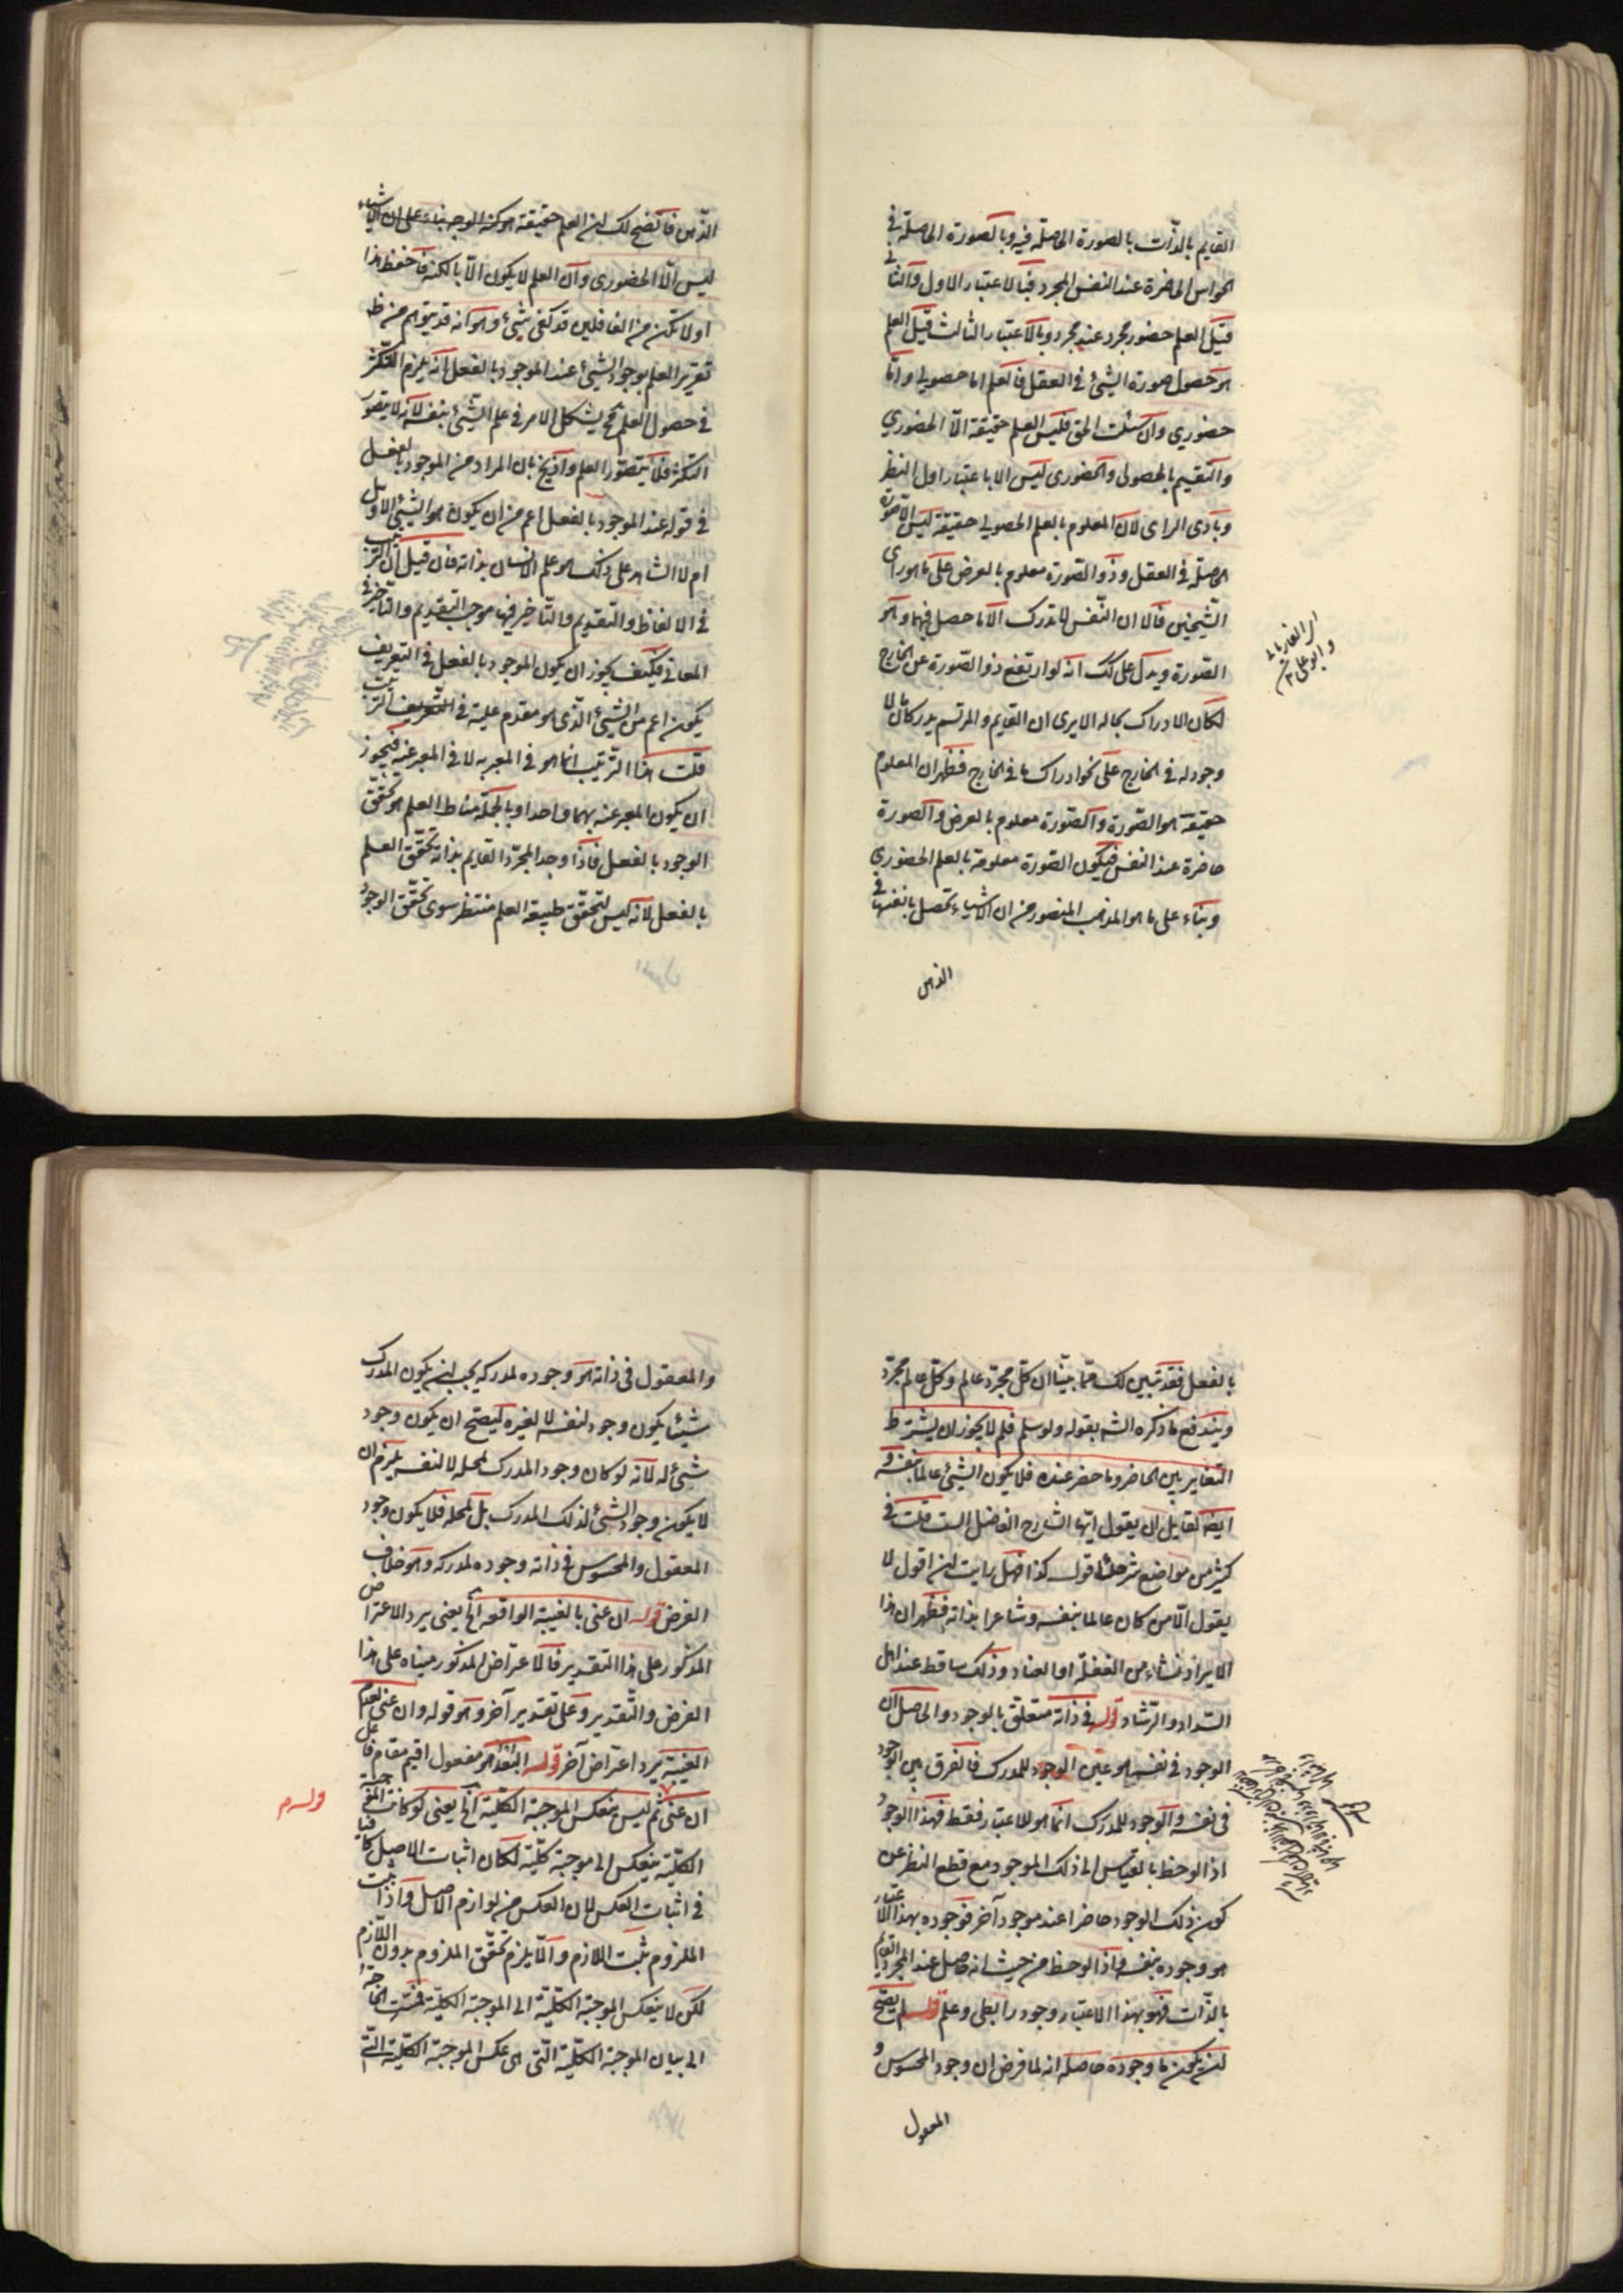 القايم بالذّات بالصورة الحاصلة فيه وبالصورة الحاصلة في
الحواس الحاضرة عند النفس المجرد فبالاعتبار الاول والثاني
قيل العلم حضور مجرد عند مجرد وبالاعتبار الثالث قيل العلم
هو حصول صورة الشيئ في العقل فالعلم اما حصولي واما
حضوري وان سئلت الحق فليس العلم حقيقة الّا الحضوري
والتقسيم بالحصولي والحضوري ليس الا باعتبار اول النظر
وبادى الراى لان المعلوم بالعلم الحصولي حقيقة ليس الا صورة
الحاصلة في العقل وذو الصورة معلوم بالعرض على ما هو راى
الشيخين فالا ان النفس لا تدرك الّا ما حصل فيها وهو
الصورة ويدل على ذلك انه لو ارتفع ذو الصورة عن الخارج
لكان الادراك بحاله الا يرى ان القايم والمرتسم يدركان لا
وجود له في الخارج على نحو ادراك ما في الخارج فظهر ان المعلوم
حقيقة هو الصورة وذو الصورة معلوم بالعرض والصورة
حاضرة عند النفس فيكون الصورة معلومة بالعلم الحضوري
وبناء على ما هو المذهب المنصور من ان الاشياء تحصل بانفسها في
الذهن
اى الفارابى
وابو على
الذهن فاتضح لك ان العلم حقيقة هو كنه الوجه بناء على ان الاشياء
ليس الّا الحضورى وان العلم لا يكون الّا بالكنه فاحفظ هذا
اولا تكن من الغافلين قد كفى شيئ وهو انه قد يتوهم من ظ
تقرير العلم بوجود الشيئ عند الموجود بالفعل انه يلزم التكثر
في حصول العلم فح يشكل الامر في علم الشيئ بنفسه لانه لا يتصور
التكثر فلا يتصور العلم وازيح بان المراد من الموجود بالفعل
في قوله عند الموجود بالفعل اعم من ان يكون هو الشيئ الاول
ام لا الشاهد على ذلك هو علم الانسان بذاته فان قيل ان الترتيب
في الالفاظ والتقديم والتاخير فيها موجب التقديم والتاخير في
المعاني فكيف يجوز ان يكون الموجود بالفعل في التعريف
يكون اعم من الشيئ الّذى هو مقدم عليه في التعريف الترتيب
قلت هذا الترتيب انما هو في المعبر به لا في المعبر عنه فيجوز
ان يكون المعبر عنه بهما واحدا وبالجملة مناط العلم هو تحقق
الوجود بالفعل فاذا وجد المجرد القايم بذاته تحقق العلم
بالفعل لانه ليس لتحقق طبيعة العلم منتظر سوى تحقق الوجود
بالفعل فقد تبين لك مما بينا ان كل مجرد عالم وكل عالم مجرد
ويندفع ما ذكره الشه بقوله ولو سلم فلم لا يجوز ان يشترط
التغاير بين الحاضر وما حضر عنده فلا يكون الشيئ عالما بنفسه و
ايضا لقايل ان يقول ايها الشارح الفاضل الست قلت في
كثير من مواضع شرحك اقول كذا فهل رايت ان اقول لا
يقول الّا من كان عالما بنفسه وشاعرا بذاته فظهر ان هذا
الايراد نشاء من الغفلة او العناد وذلك ساقط عند اهل
السداد والرشاد قوله في ذاته متعلق بالوجود والحاصل ان
الوجود في نفسه هو عين الوجود للمدرك فالفرق بين الوجود
في نفسه والوجود للمدرك انما هو للاعتبار فقط فهذا الوجود
اذا لوحظ بالقياس الى ذلك الموجود مع قطع النظر عن
كون ذلك الوجود حاضرا عند موجود آخر فوجوده بهذا الاعتبار
هو وجوده بنفسه واذا لوحظ من حيث انه حاصل عند المجرد القايم
بالذّات فهو بهذا الاعتبار وجود رابطى وعلم قوله لم يصح
ان يكون ما وجوده حاصله انه لما فرض ان وجود المحسوس و
المعقول
والمعقول فى ذاته هو وجوده لمدركه يجب ان يكون المدرك
شيئا يكون وجود لنفسه لا لغيره ليصح ان يكون وجود
شيئ له لانه لو كان وجود المدرك لمحله لا لنفسه يلزم ان
لا يكون وجود الشيئ لذلك المدرك بل لمحله فلا يكون وجود
المعقول والمحسوس في ذاته وجوده لمدركه وهو خلاف
الفرض قوله ان عنى بالغيبة الواقعه الخ يعنى يرد الاعتراض
المذكور على هذا التقدير فالاعتراض المذكور مبناه على هذا
الفرض والتقدير وعلى تقدير آخر وهو قوله وان عنى بعدم
الغيبة يرد اعتراض آخر قوله مفعول اقيم مقام فاعل
ان عنى ثم ليس ينعكس الموجبة الكلية الخ يعنى لو كانت الموجبة
الكلية ينعكس الى موجبة كلية لكان اثبات الاصل كافيا
في اثبات العكس لان العكس من لوازم الاصل واذا ثبت
الملزوم يثبت اللازم والّا يلزم تحقق الملزوم بدون اللازم
لكن لا ينعكس الموجبة الكلية الى الموجبة الكلية فمست الحاجة
الى بيان الموجبة الكلية التى هى عكس الموجبة الكلية
قوله م